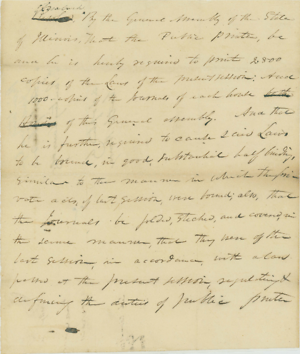 Resolved
By the General Assembly of the State
of Illinois, That the Public Printer, be
and he is hereby required to print 2500
copies of the Laws of the present session; And
1000 copies of the Journals of each house
of this General assembly. And that
he is further required to cause said Laws
to be bound, in good, substantial half binding,
similar to the manner in which the pri-
vate acts, of last session, were bound; also, that
the Journals be folded, stiched, and covered, in
the same manner, that they were of the
last session in accordance, with a law
passed at the present session, regulating &
defining the duties of Public Printer